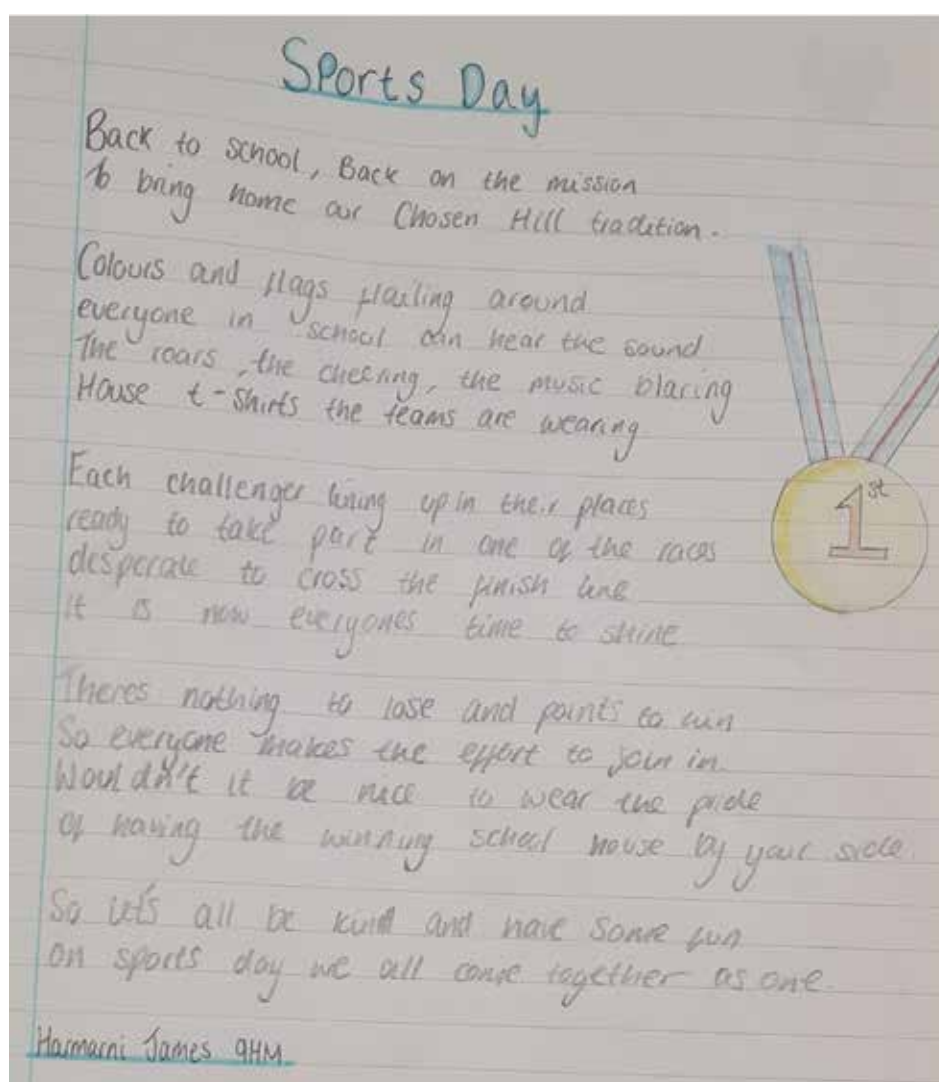 Sports Day
Back to school, Back on the mission
to bring home our Chosen Hill tradition.
Colours and flags flailing around
everyone in school can hear the sound
The roars, the cheering, the music blaring
House t-shirts the teams are wearing
Each challenger lining up in their places
ready to take part in one of the races
desperate to cross the finish line
it is now everyones time to shine
Theres nothing to lose and points to win
So everyone makes the effort to join in
Wouldn't it be nice to wear the pride
of having the winning school house by your side.
So let's all be kind and have some fun
on sports day we all come together as one.
Harmarni James 9HM
1st